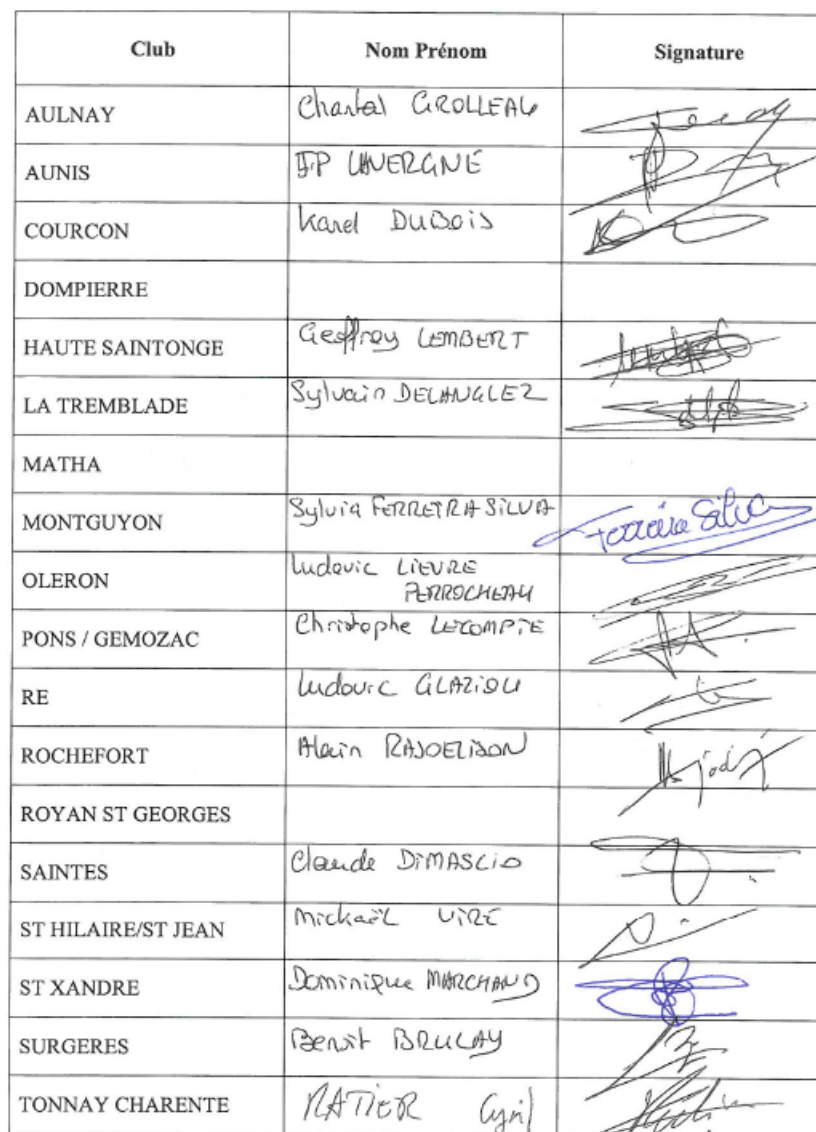 Club Nom Prénom Signature
AULNAY Chantal GROLLEAU
AUNIS JP LAVERGNE
COURCON Karel DUBOIS
DOMPIERRE
HAUTE SAINTONGE Geoffroy LEMBERT
LA TREMBLADE Sylvain DELANGLEZ
MATHA
MONTGUYON Sylvia FERREIRA SILVA Ferreira Silva
OLERON Ludovic LIEVRE
PERROCHEAU
PONS / GEMOZAC Christophe LECOMPTE
RE Ludovic GLAZIOU
ROCHEFORT Alain RAJOELISON
ROYAN ST GEORGES
SAINTES Claude DIMASCIO
ST HILAIRE/ST JEAN Mickaël VIRE
ST XANDRE Dominique MARCHAND
SURGERES Benoit BRULAY
TONNAY CHARENTE RATIER Cyril